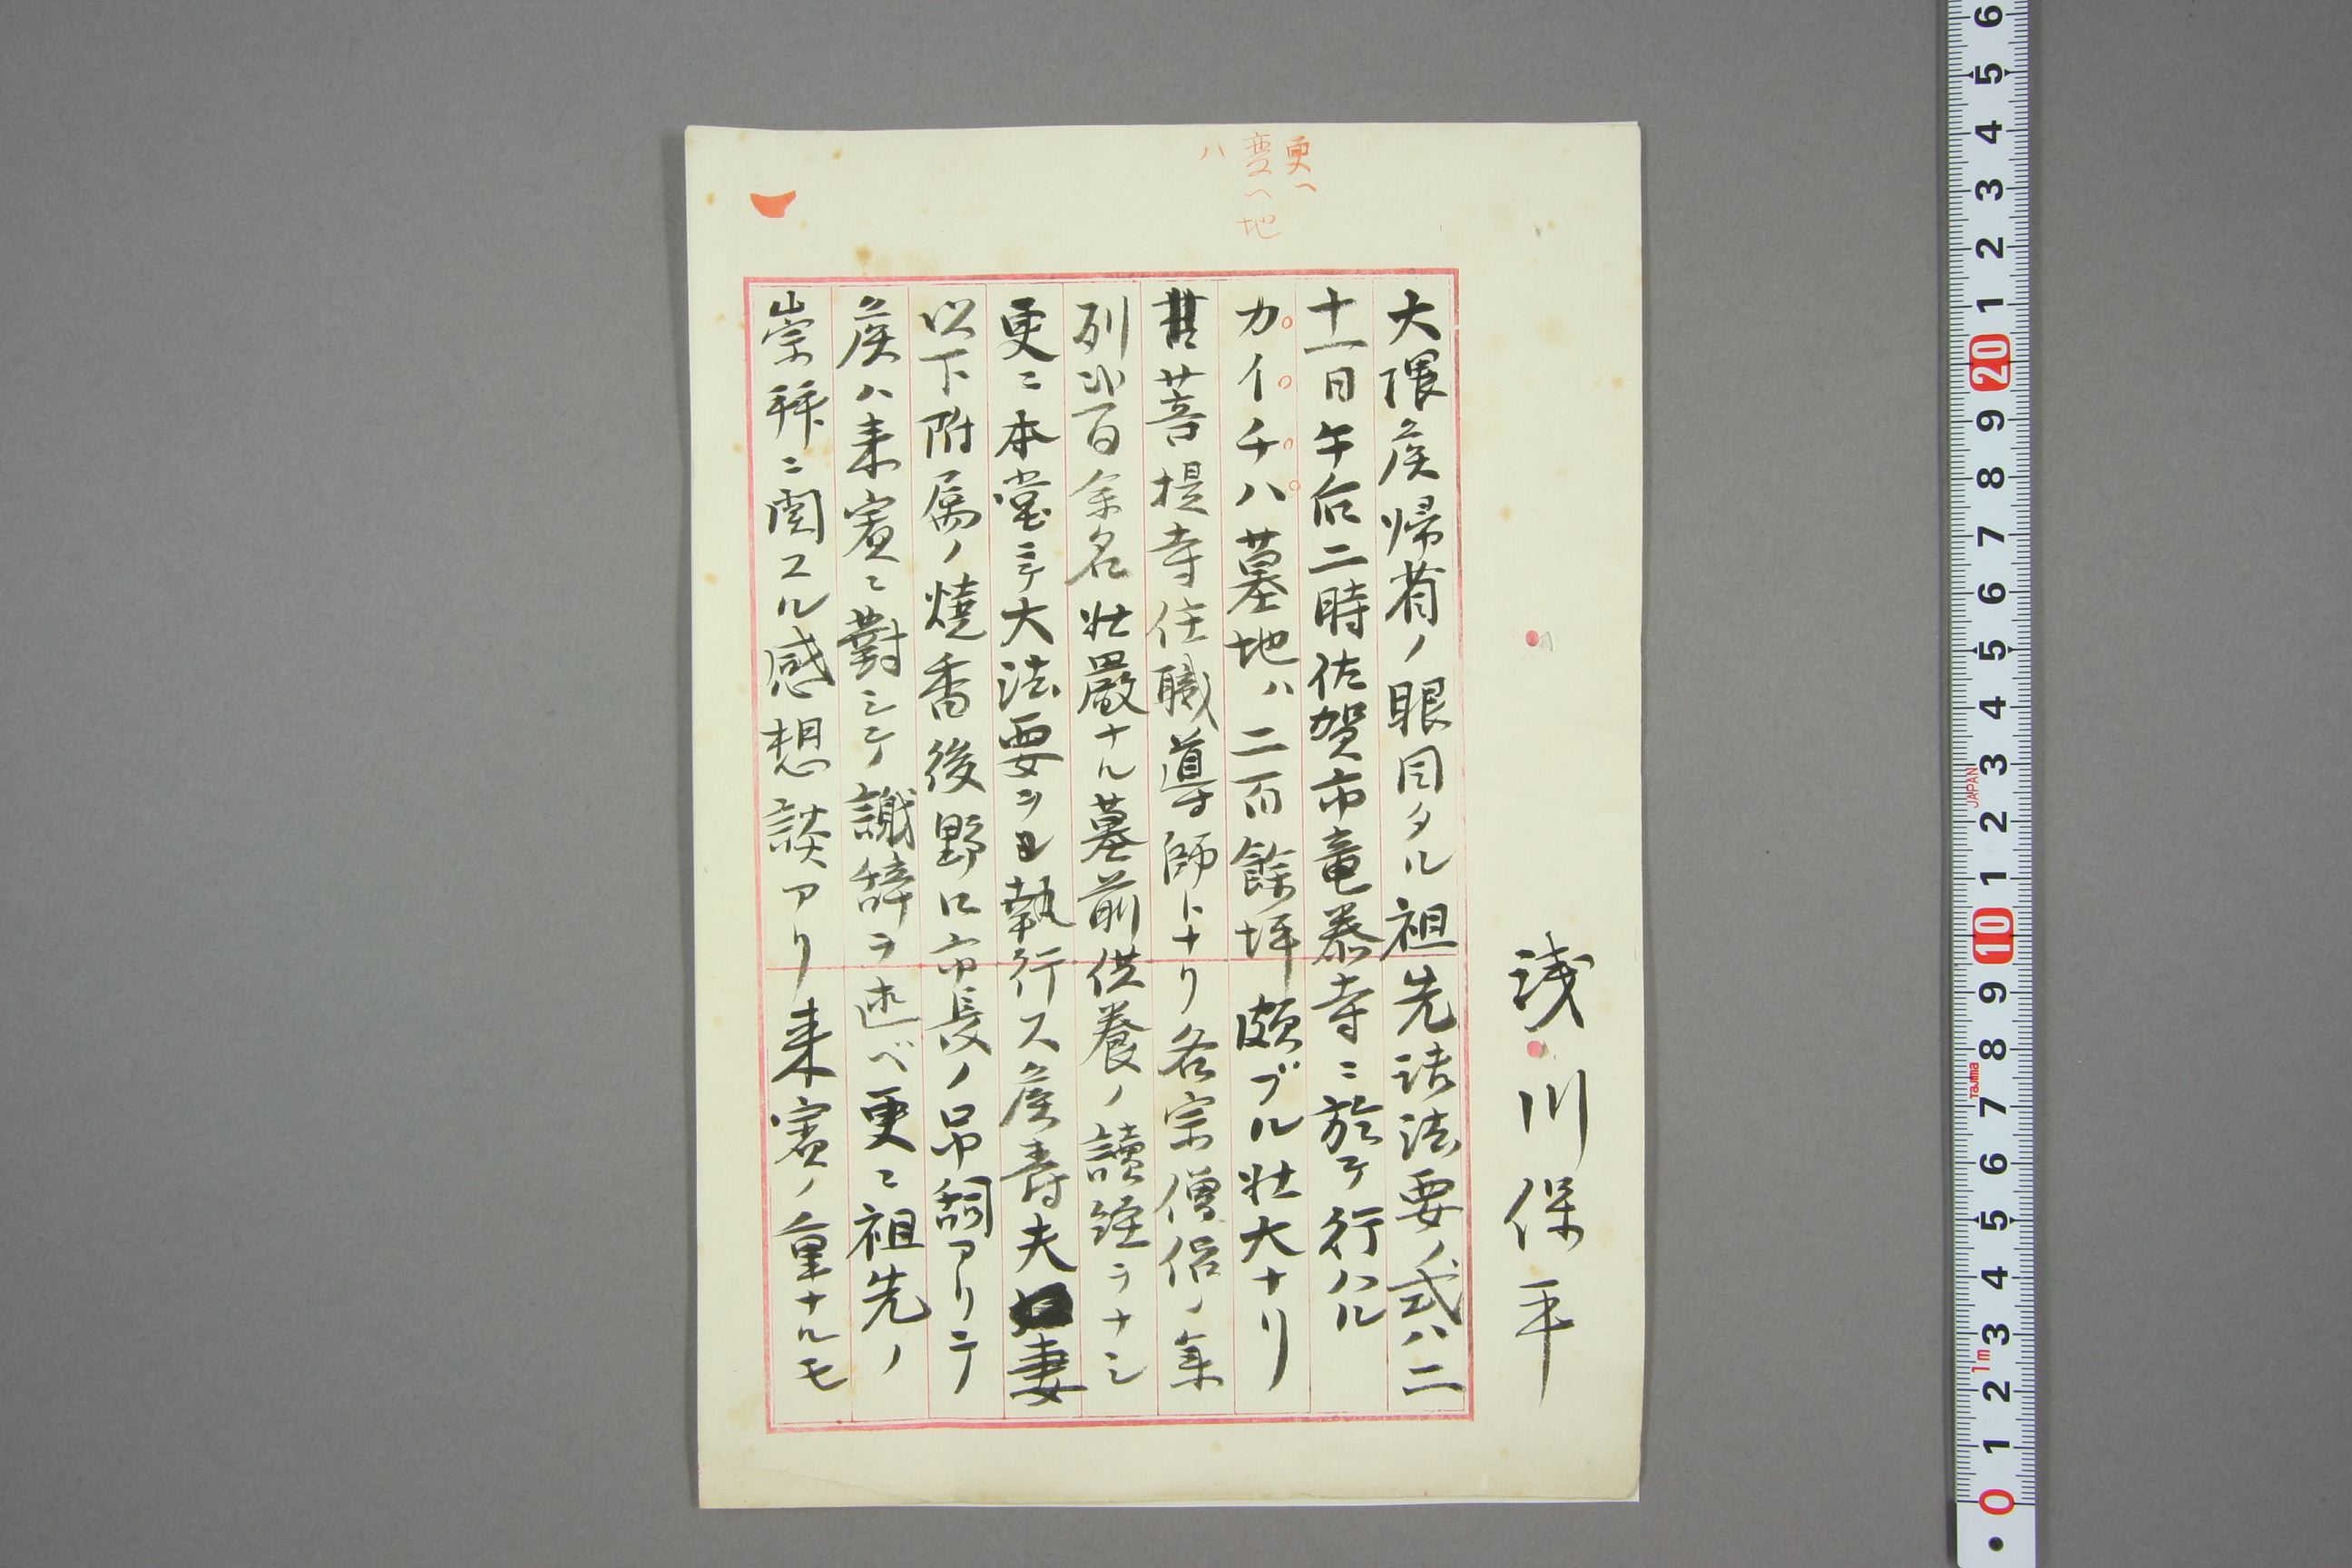 浅川保平
更ヘ
変ヘ地
ハ
大隈侯帰省ノ眼目タル祖先法要ノ式ハ二
十一日午后二時佐賀市竜泰寺ニ於テ行ハル
カイチハ墓地ハ二百餘坪頗ブル壮大ナリ
菩提寺住職導師トナリ各宗僧侶ノ
列百余名壮嚴ナル墓前供養ノ讀経ヲナシ
更ニ本堂ニテ大法要ヲ執行ス侯壽夫妻
以下附属ノ焼香後野口市長ノ吊詞アリテ
侯ハ来賓ニ對シテノ謝辞ヲ述ベ更ニ祖先ノ
崇拜ニ関スル感想談アリ来賓ノ重ナルモ
6 5 4 3 2 1 20 9 8 7 6 5 4 3 2 1 10 9 8 7 6 5 4 3 2 1 0
JAPAN
Tajima
1m